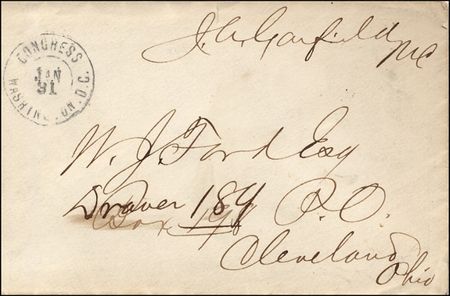 CONGRESS
JAN
31
WASHINGTON. D.C.
J. A. Garfield
MC
W. J. Ford Esq
Drawer 184 P.O.
Box
Cleveland
Ohio